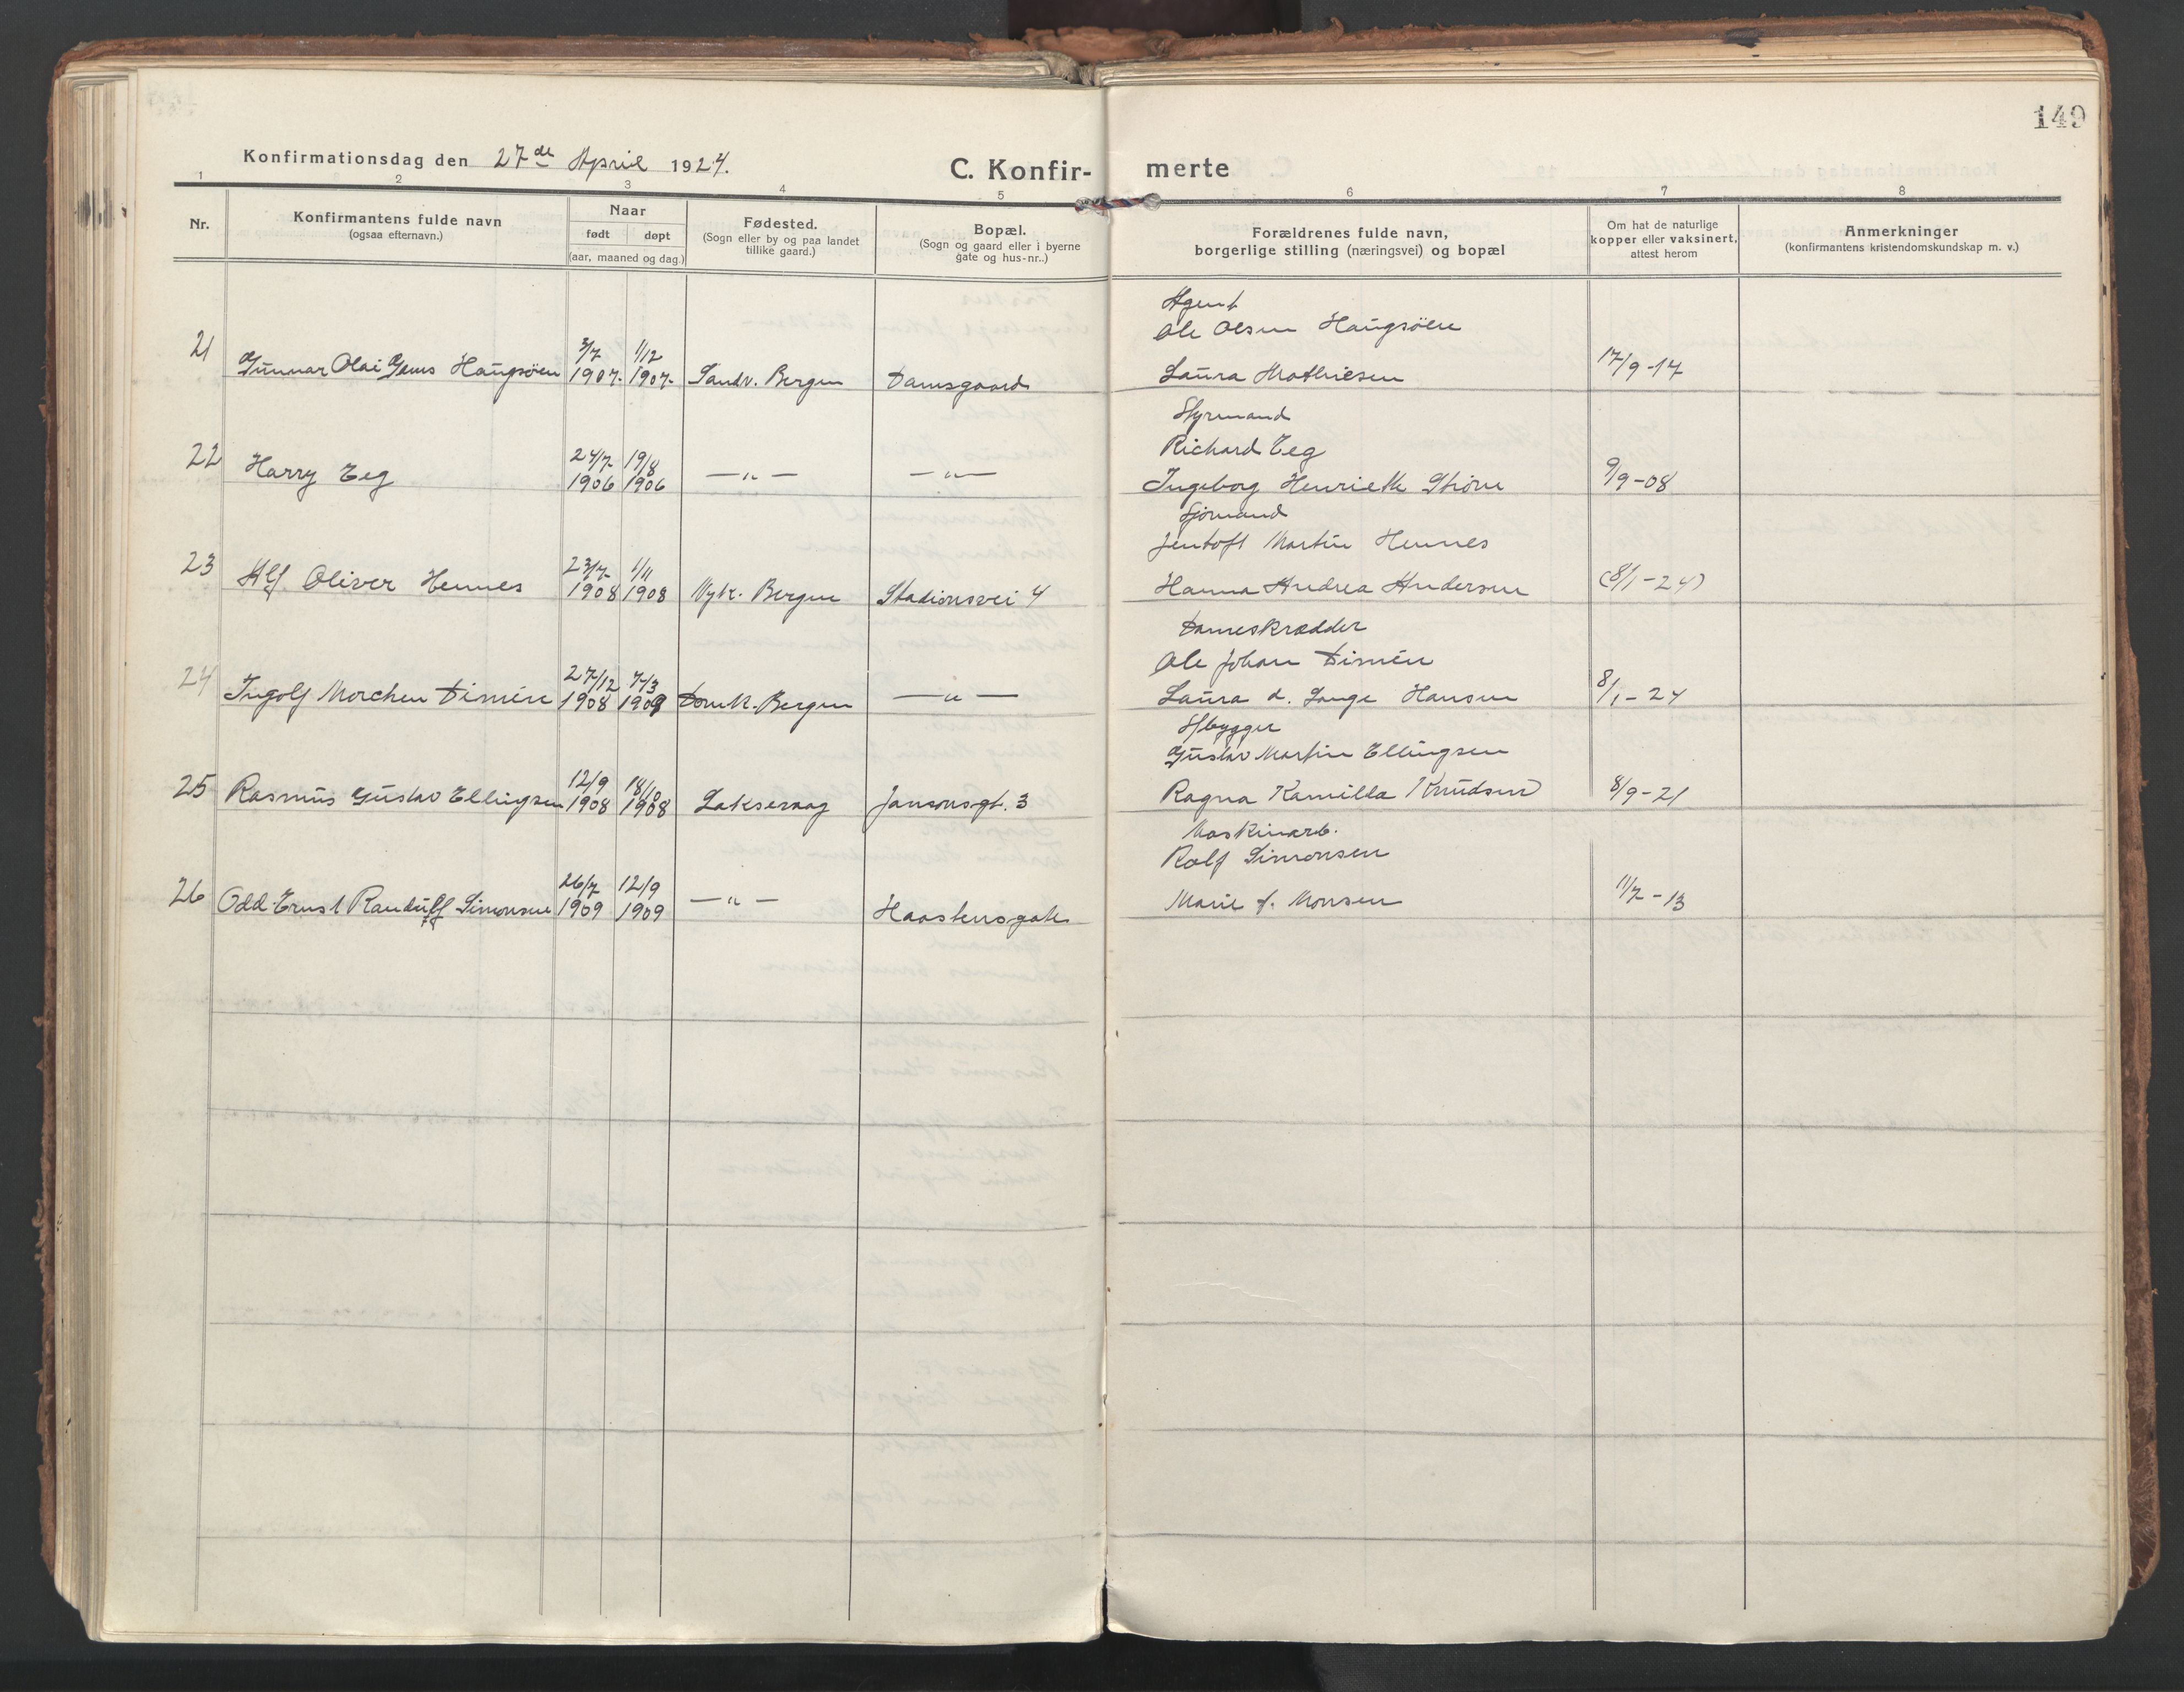 149
Konfirmationsdag den 27de April 1924.
C. Konfir-merte
1 2 3 4 5 6 7 8
Nr.
Konfirmantens fulde navn
(ogsaa efternavn.)
Naar
født døpt
(aar, maaned og dag.)
Fødested.
(Sogn eller by og paa landet
tillike gaard.)
Bopæl.
(Sogn og gaard eller i byerne
gate og hus-nr..)
Forældrenes fulde navn,
borgerlige stilling (næringsvei) og bopæl
Om hat de naturlige
kopper eller vaksinert,
attest herom
Anmerkninger
(konfirmantens kristendomskundskap m. v.)
Agent
Ole Olsen Haugsöen
21 3/7 1/12 17/9-14
Gunnar Olai Jens Haugsöen 1907. 1907. Sandv. Bergen Damsgaard Laura Mathiesen
Styrmand
Richard Eeg
22 Harry Eeg 24/7 19/8
1906 1906 —„— —„— Ingeborg Henriette 9/9-08
Sjömand
Jentoft Martin Hennes
23 23/7 1/11
Alf Oliver Hennes 1908 1908 Nykr. Bergen Stadionsvei 4 Hanna Andrea Andersen (8/1-24)
Dameskrædder
Ole Johan Dismén
24 27/12 7/3
Ingolf Morchen Dismén 1908 1909 Domk. Bergen —„— Laura d. Lange Hansen 8/1-24
Gustav Martin Ellingsen
25 12/9 18/10
Rasmus Gustav Ellingsen 1908 1908 Laksevaag Jansonsgt. 3 Ragna Kamilla Knudsen 8/9-21
Maskinarb.
Rolf Simonsen
26 26/7 12/9
Odd Ernst Randulff Simonsen 1909 1909 —„— Haastensgate Marie f. Monsen 11/7-13